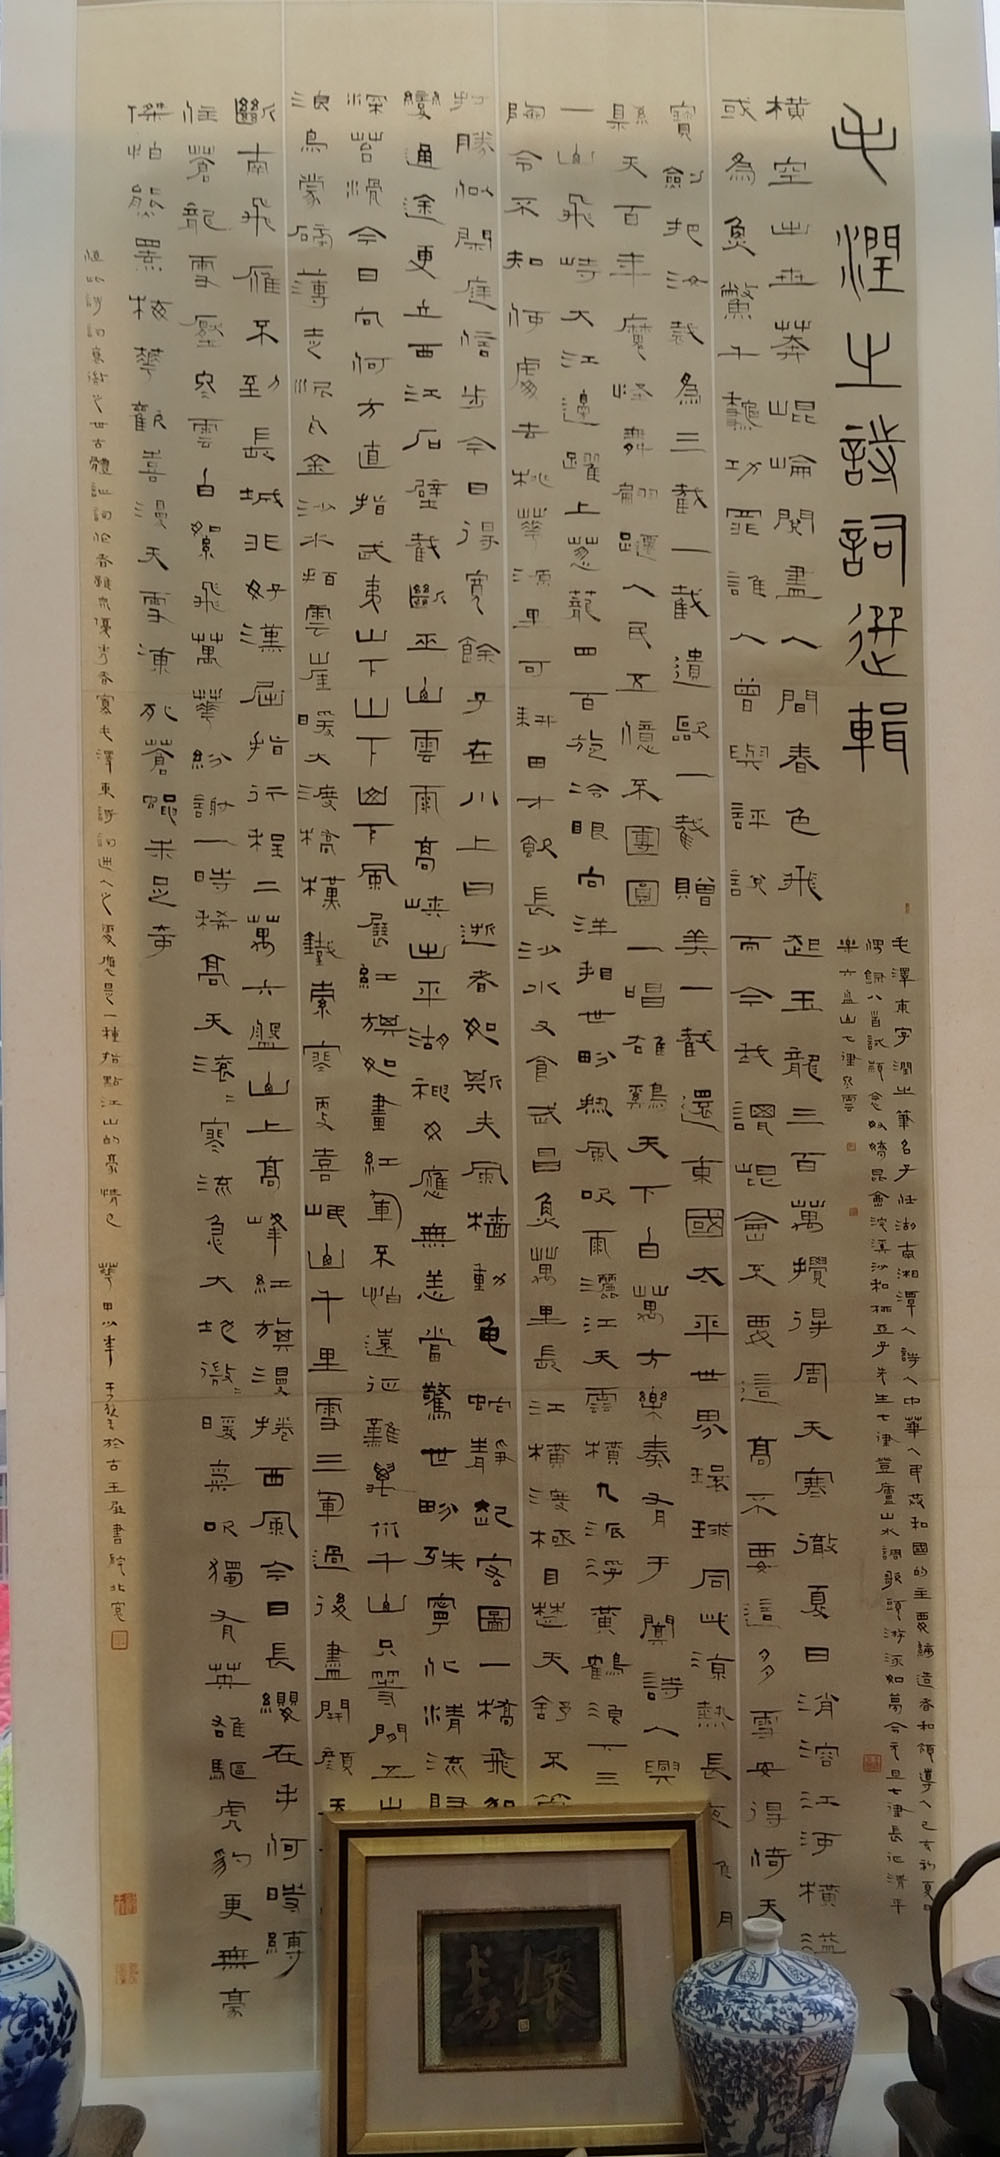 毛潤之詩詞選輯
毛澤東字潤之筆名子任湖南湘潭人詩人中華人民共和國的主要締造者和領導人己亥初夏日
偶錄八首詞調念奴嬌昆侖浣溪沙和柳亞子先生七律登廬山水調歌頭游泳如夢令元旦七律長征清平
樂六盤山七律冬雲
橫空出世莽崐崘閱盡人間春色飛起玉龍三百萬攪得周天寒徹夏日消溶江河橫溢
或為魚鱉千龝功罪誰人曾與評說而今我謂崐崙不要這高不要這多雪安得倚天
寶劍把汝裁為三截一截遺歐一截贈美一截還東國太平世界環球同此涼熱長夜
縣天百年魔怪舞翩躚人民五億不團圓一唱雄鷄天下白萬方樂奏有于闐詩人興
一山飛峙大江邊躍上蔥蘢四百旋冷眼向洋看世界熱風吹雨灑江天雲橫九派浮黃鶴浪下三
陶令不知何處去桃花源里可耕田才飲長沙水又食武昌魚萬里長江橫渡極目楚天舒不管
打勝似閑庭信步今日得寬餘子在川上曰逝者如斯夫風檣動龜蛇靜起宏圖一橋飛架
變通途更立西江石壁截斷巫山雲雨高峽出平湖神女應無恙當驚世界殊寧化清流歸
深苔滑今日向何方直指武夷山下山下山下風展紅旗如畫紅軍不怕遠征難萬水千山只等閒五
浪烏蒙磅薄走泥丸金沙水拍雲崖暖大渡橋橫鐵索寒更喜岷山千里雪三軍過後盡開顏天
斷南飛雁不到長城非好漢屈指行程二萬六盤山上高峰紅旗漫捲西風今日長纓在手何時縛
住蒼龍雪壓冬雲白絮飛萬花紛謝一時稀高天滾〻寒流急大地微〻暖氣吹獨有英雄驅虎豹更無豪
傑怕熊羆梅花歡喜漫天雪凍死蒼蠅未足奇
值此詩詞衰微之世古體詩詞作者雖眾優秀者寡毛澤東詩詞迷人之處應是一種指點江山的豪情也 於古玉屋書院北窗
懷